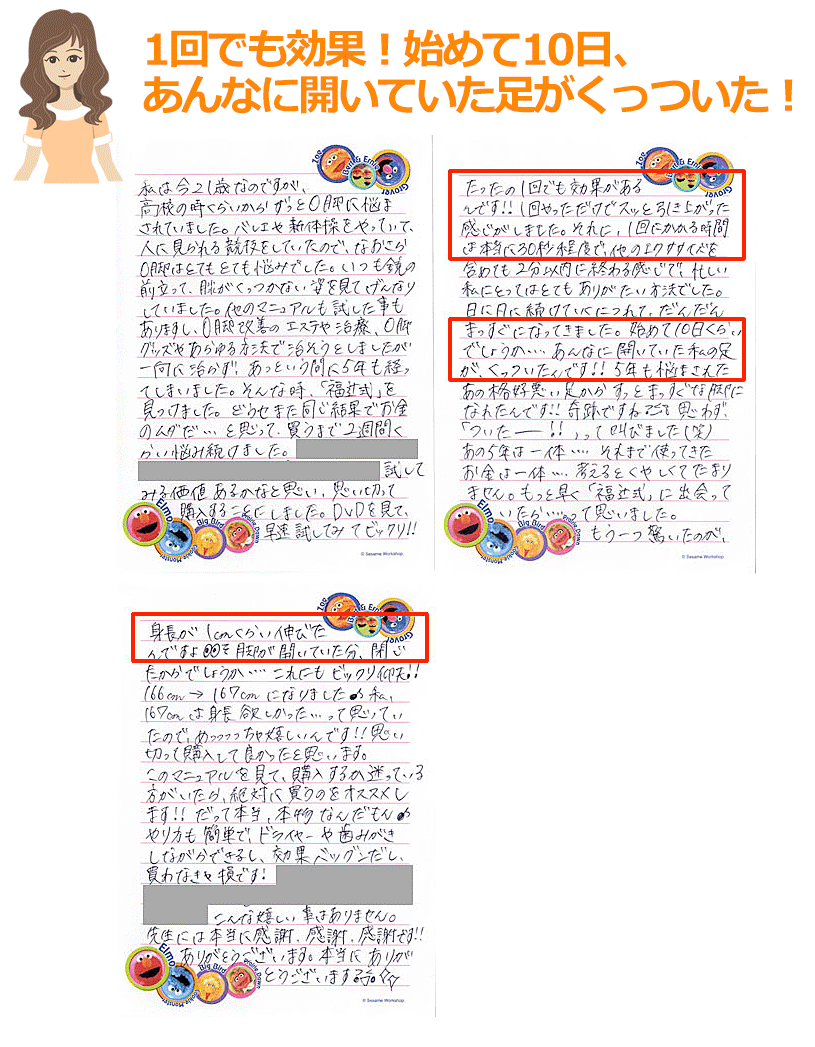 1回でも効果！始めて10日、
あんなに開いていた足がくっついた！
Zoe
Bert & Ernie
Grover
私は今21歳なのですが、
高校の時くらいからずっとO脚に悩ま
されていました。バレエや新体操をやっていて、
人に見られる競技をしていたので、なおさら
O脚はとてもとても悩みでした。いつも鏡の
前立って、脚がくっつかない姿を見てげんなり
していました。他のマニュアルも試した事も
ありますし、O脚改善のエステや治療、O脚
グッズやあらゆる方法で治そうとしましたが
一向に治らず、あっという間に5年も経っ
てしまいました。そんな時、「福辻式」を
見つけました。どうせまた同じ結果でお金
のムダだ…と思って、買うまで2週間く
らい悩み続けました。
試して
みる価値あるかなと思い、思い切って
購入することにしました。DVDを見て、
早速試してみてビックリ!!
Elmo
Cookie Monster
Big Bird
Prairie Dawn
© Sesame Workshop.
Zoe
Bert & Ernie
Grover
たったの1回でも効果がある
んです!!1回やっただけでスッと引き上がった
感じがしました。それに、1回にかかる時間
は本当に30秒程度で、他のエクササイズを
含めても2分以内に終わる感じで、忙しい
私にとってはとてもありがたい方法でした。
日に日に続けていくにつれて、だんだん
まっすぐになってきました。始めて10日くらい
でしょうか…あんなに開いていた私の足
が、くっついたんです!!5年も悩まされた
あの格好悪い足からずっとまっすぐな脚に
なれたんです!!奇跡ですね 思わず、
「ついたー!!」って叫びました(笑)
あの5年は一体…それまで使ってきた
お金は一体…考えるとくやしくてたまり
ません。もっと早く「福辻式」に出会って
いたら…って思いました。
もう一つ驚いたのが、
Elmo
Cookie Monster
Big Bird
Prairie Dawn
© Sesame Workshop.
Zoe
Bert & Ernie
Grover
身長が1cmくらい伸びた
んですよ 脚が開いていた分、閉じ
たからでしょうか…これにもビックリ仰天!!
166cm→167cmになりました♪私、
167cmは身長欲しかった…って思ってい
たので、めっつつつちゃ嬉しいんです!!思い
切って購入して良かったと思います。
このマニュアルを見て、購入するか迷っている
方がいたら、絶対に買うのをオススメし
ます!!だって本当、本物なんだもん♪
やり方も簡単で、ドライヤーや歯みがき
しながらできるし、効果バツグンだし、
買わなきゃ損です!
こんな嬉しい事はありません。
先生には本当に感謝、感謝、感謝です!!
ありがとうございます。本当にありが
とうございまする。☆☆
Elmo
Cookie Monster
Big Bird
Prairie Dawn
© Sesame Workshop.